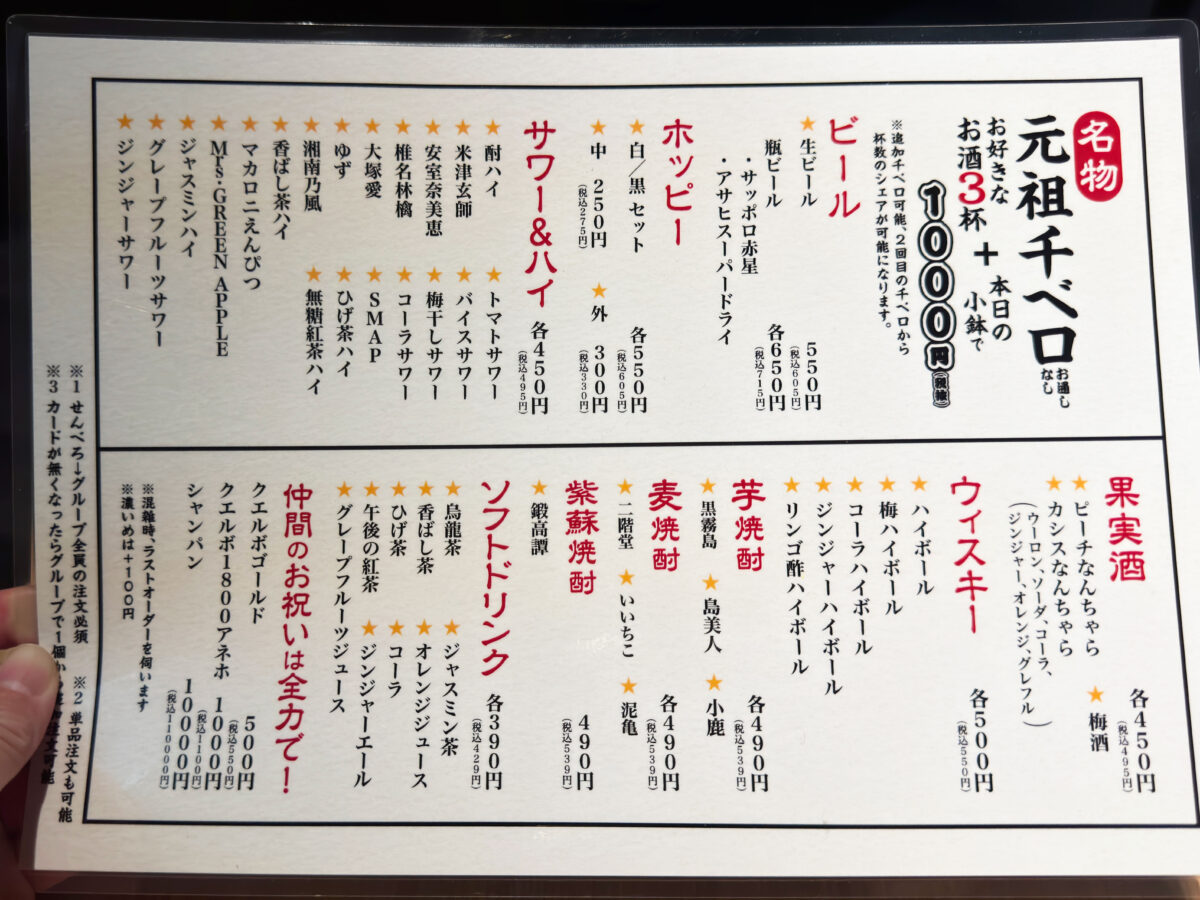 名物
元祖千ベロ
お通し
なし
お好きな
お酒3杯
+
本日の
小鉢で
1000円(税抜)
※追加千ベロ可能、2回目の千ベロから
杯数のシェアが可能になります。
ビール
★生ビール 550円
(税込605円)
瓶ビール 各650円
(税込715円)
・サッポロ赤星
・アサヒスーパードライ
ホッピー
★白/黒 セット 各550円
(税込605円)
★中 250円 ★外 300円
(税込275円) (税込330円)
サワー&ハイ 各450円
(税込495円)
★酎ハイ ★トマトサワー
★米津玄師 ★バイスサワー
★安室奈美恵 ★梅干しサワー
★椎名林檎 ★コーラサワー
★大塚愛 ★SMAP
★ゆず ★ひげ茶ハイ
★湘南乃風 ★無糖紅茶ハイ
★香ばし茶ハイ
★マカロニえんぴつ
★Mrs.GREEN APPLE
★ジャスミンハイ
★グレープフルーツサワー
★ジンジャーサワー
果実酒 各450円
(税込495円)
★ピーチなんちゃら ★梅酒
★カシスなんちゃら
(ウーロン、ソーダ、コーラ、
ジンジャー、オレンジ、グレフル)
ウィスキー 各500円
(税込550円)
★ハイボール
★梅ハイボール
★コーラハイボール
★ジンジャーハイボール
★リンゴ酢ハイボール
芋焼酎 各490円
(税込539円)
★黒霧島 ★島美人 ★小鹿
麦焼酎 各490円
(税込539円)
★二階堂 ★いいちこ ★泥亀
紫蘇焼酎 490円
(税込539円)
★鍛高譚
ソフトドリンク 各390円
(税込429円)
★烏龍茶 ★ジャスミン茶
★香ばし茶 ★オレンジジュース
★ひげ茶 ★コーラ
★午後の紅茶 ★ジンジャーエール
★グレープフルーツジュース
仲間のお祝いは全力で!
クエルボゴールド 500円
(税込550円)
クエルボ1800アネホ 1000円
(税込1100円)
シャンパン 10000円
(税込11000円)
※混雑時、ラストオーダーを伺います
※濃いめは+100円
※1 せんべろ→グループ全員の注文必須 ※2 単品注文も可能
※3 カードが無くなったらグループで1個か 注文可能